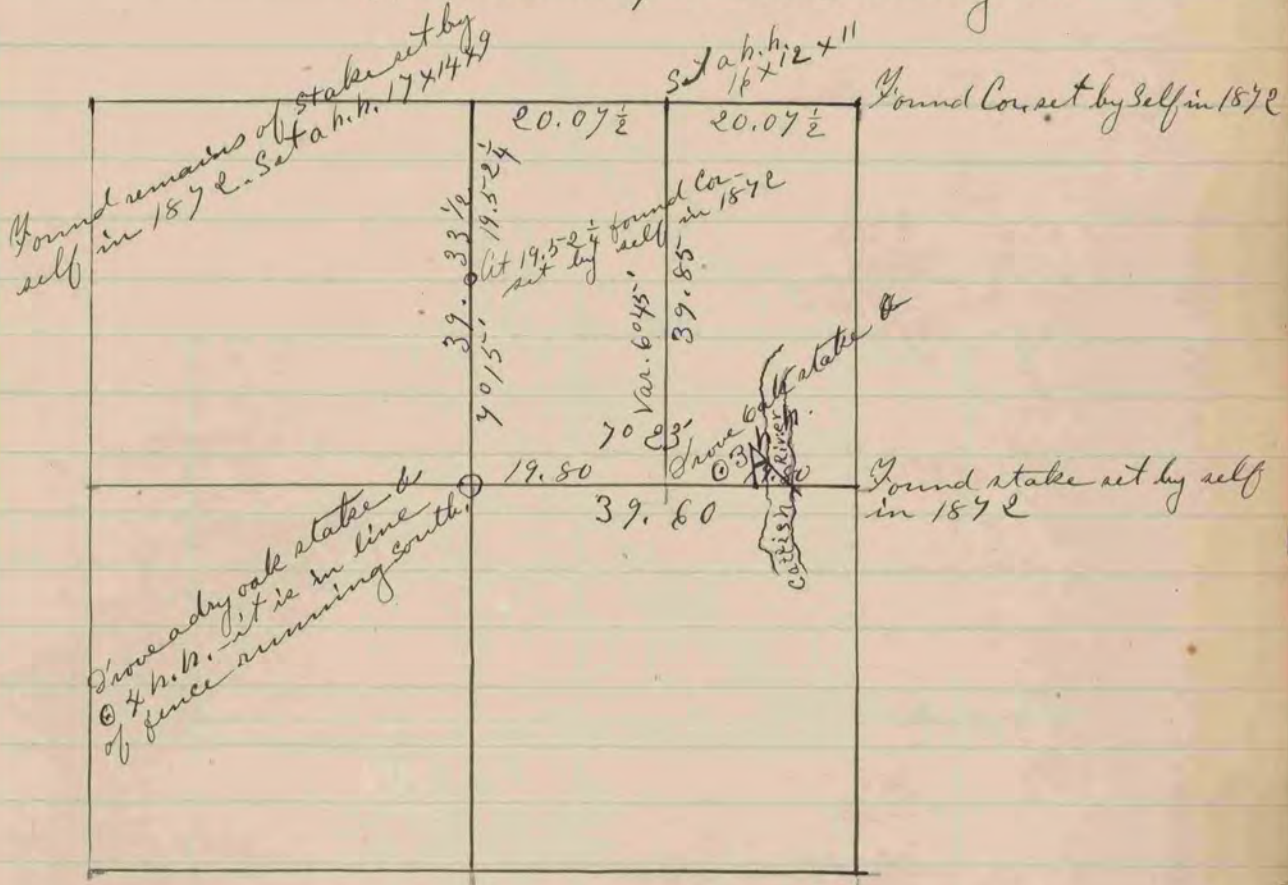 Found remains of stake set by
self in 1872. Set a h.h. 17 x 14 x 9
Set a h.h.
16 x 12 x 11
Found Cor. set by Self in 1872
20.07 ½
20.07 ½
39.33 ½
19.52 ¼
At 19.52 ¼ found Cor-
set by self in 1872
7° 15'
Var. 6° 45'
39.85
Drove oak stake &
⊙ 3 h.
7° 23'
19.80
39.60
Catfish River
Found stake set by self
in 1872
Drove a dry oak stake &
⊙ 4 h.h. - it is in line
of fence running south.